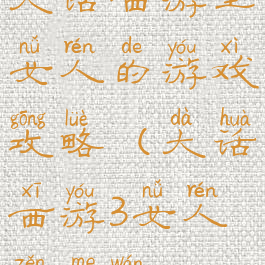 大话西游里
nǚ rén de yóu xì
女人的游戏
gōng lüè dà huà
攻略（大话
xī yóu nǚ rén
西游3女人
zěn me wán